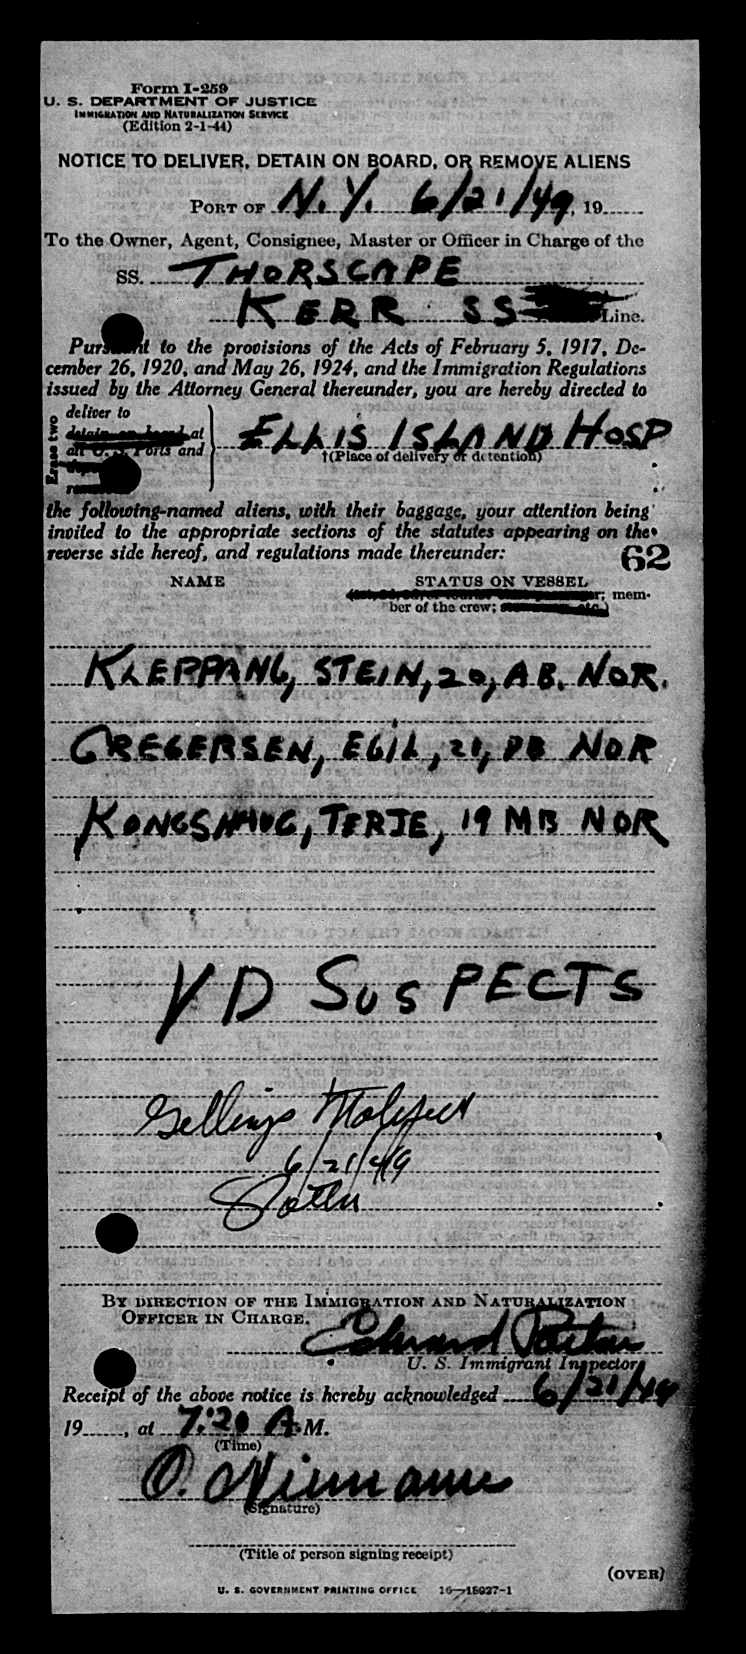 Form I-259
U. S. DEPARTMENT OF JUSTICE
IMMIGRATION AND NATURALIZATION SERVICE
(Edition 2-1-44)
NOTICE TO DELIVER, DETAIN ON BOARD, OR REMOVE ALIENS
PORT OF N.Y. 6/21/49, 19
To the Owner, Agent, Consignee, Master or Officer in Charge of the
SS. THORSCAPE
KERR SS Line.
Pursuant to the provisions of the Acts of February 5, 1917, De-
cember 26, 1920, and May 26, 1924, and the Immigration Regulations
issued by the Attorney General thereunder, you are hereby directed to
Erase two
deliver to
detain on board at
all U. S. Ports and
ELLIS ISLAND HOSP
†(Place of delivery or detention)
the following-named aliens, with their baggage, your attention being
invited to the appropriate sections of the statutes appearing on the
reverse side hereof, and regulations made thereunder:
62
NAME STATUS ON VESSEL
mem-
ber of the crew;
KLEPPANG, STEIN, 20, AB. NOR.
GREGERSEN, EGIL, 21, DB NOR
KONGSHAUG, TERJE, 19 MB NOR
VD SUSPECTS
6/21/49
BY DIRECTION OF THE IMMIGRATION AND NATURALIZATION
OFFICER IN CHARGE.
Edward
U. S. Immigrant Inspector
Receipt of the above notice is hereby acknowledged 6/21/49
19, at 7:20 A.M.
(Time)
O. Niemann
(Signature)
(Title of person signing receipt)
(OVER)
U. S. GOVERNMENT PRINTING OFFICE 16—15927-1